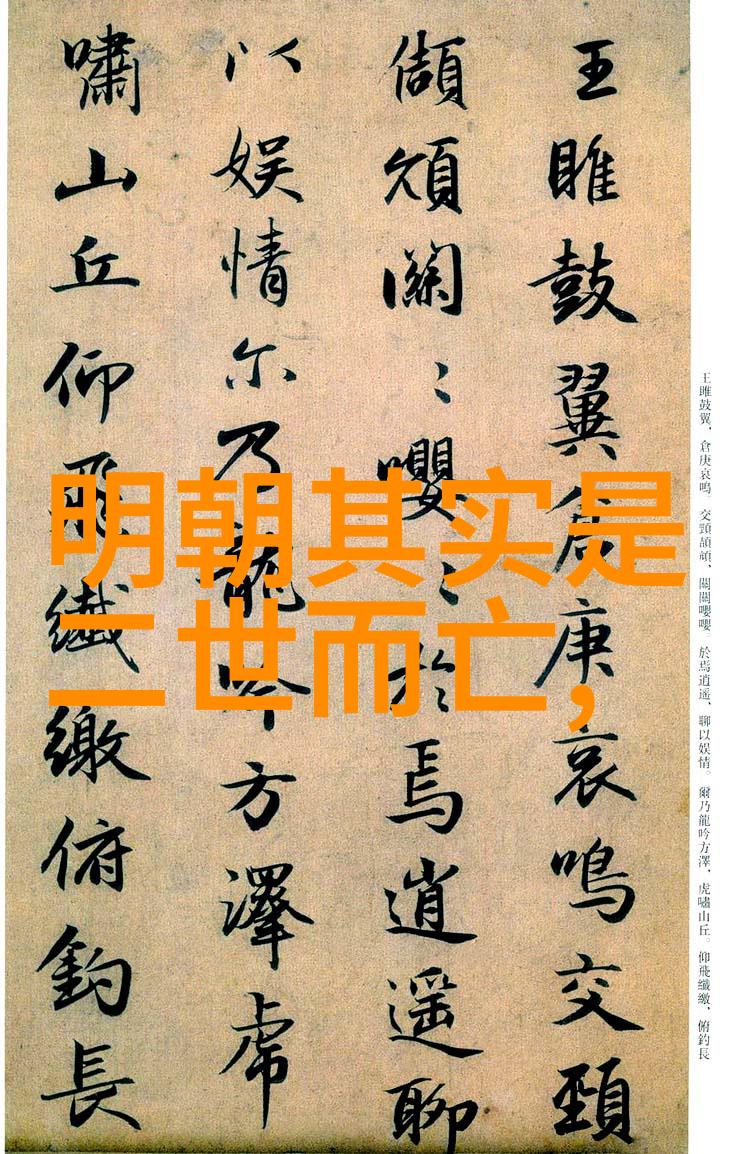 明朝其实是
二世而亡，
王雎鼓翼倉庚哀鳴交頸
頡頏關〻嚶〻於焉逍遥聊
以娱情尔乃龍吟方澤虎
嘯山丘仰飛纖繳俯釣長
王雎鼓翼、倉庚哀鳴。交頸頡頏、關關嚶嚶。於焉逍遥、聊以娱情。爾乃龍吟方澤、虎嘯山丘。仰飛纖繳、俯釣長